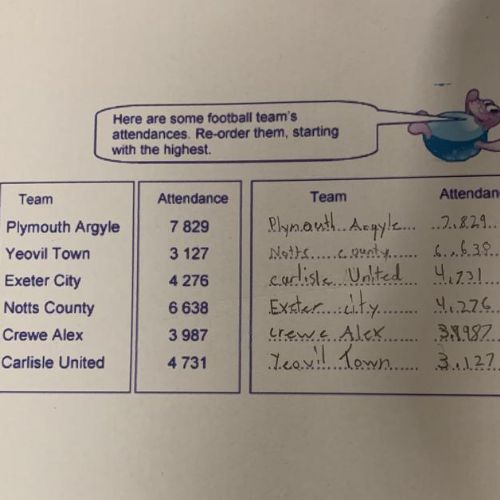 Here are some football team's
attendances. Re-order them, starting
with the highest.
Team Attendance
Plymouth Argyle 7 829
Yeovil Town 3 127
Exeter City 4 276
Notts County 6 638
Crewe Alex 3 987
Carlisle United 4 731
Team Attendan
Plymouth Argyle 7,829
Notts county 6,638
carlisle United 4,731
Exeter city 4,276
crewe Alex 3,987
Yeovil Town 3,127